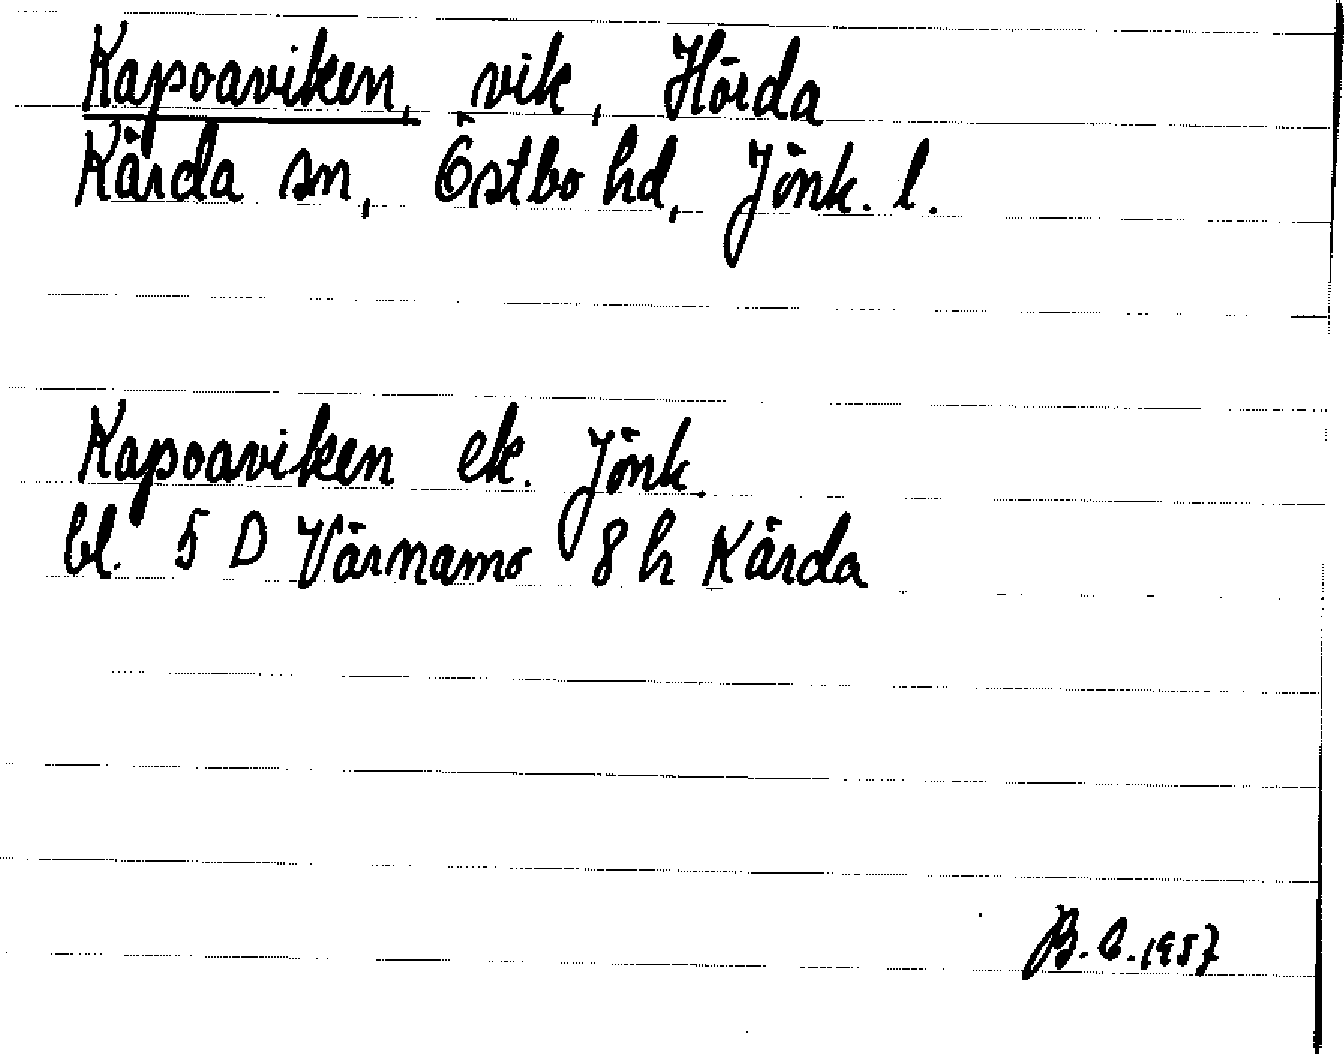 Kapoaviken, vik, Hörda
Kärda sn, Östbo hd, Jönk. l.
Kapoaviken ek. Jönk.
bl. 5 D Värnamo 8 h Kärda
B.C. 1957